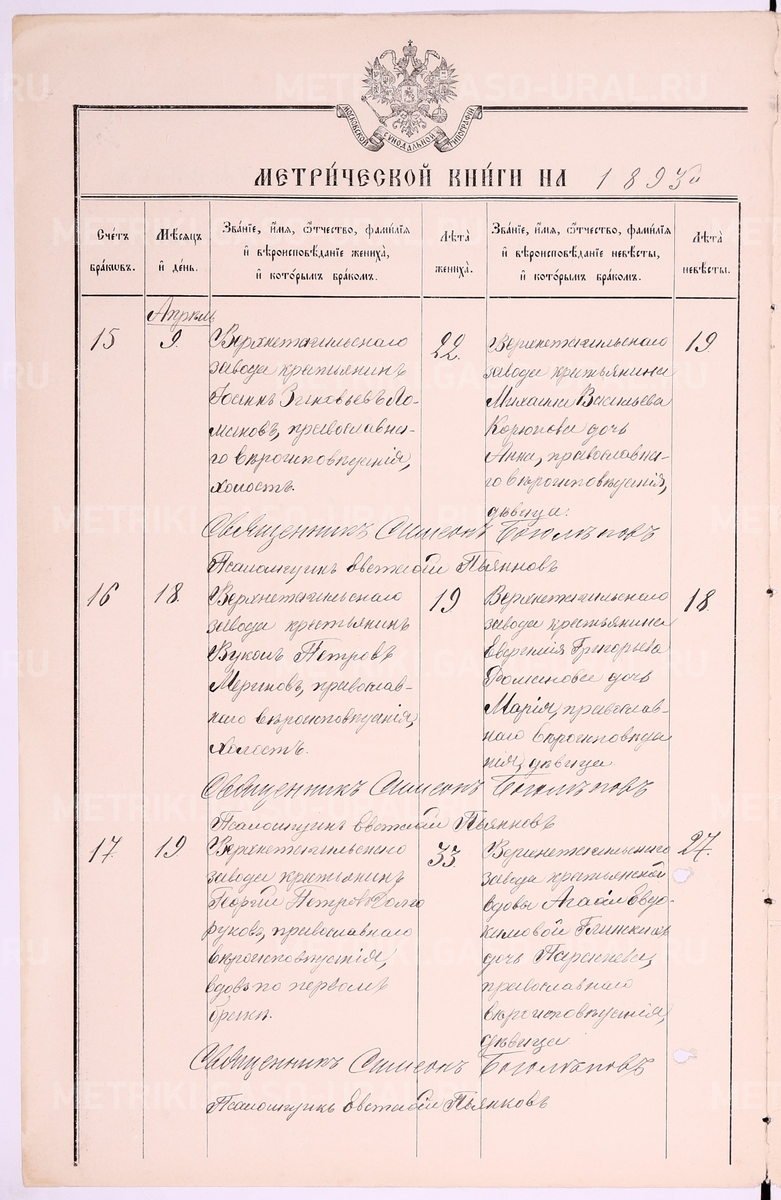 МОСКОВСКОЙ СѴНОДАЛЬНОЙ ТИПОГРАФІИ
МЕТРИ́ЧЕСКОЙ КНИ́ГИ НА 1893 й
Сче́тъ бра́ковъ.
Мѣ́сяцъ и҆ де́нь.
Зва́нїе, и҆́мя, ѻ҆́тчество, фами́лїя и҆ вѣроисповѣ́данїе жениха̀, и҆ кото́рымъ бра́комъ.
Лѣ́та жениха̀.
Зва́нїе, и҆́мя, ѻ҆́тчество, фами́лїя и҆ вѣроисповѣ́данїе невѣ́сты, и҆ кото́рымъ бра́комъ.
Лѣ́та невѣ́сты.
Апрѣль
15
9.
Верхнетагильскаго
завода крестьянинъ
Іоаннъ Зиновьевъ Ло-
маковъ, православна-
го вѣроисповѣданія,
холостъ.
22.
Верхнетагильскаго
завода крестьянина
Михаила Васильева
Корюкова дочь
Анна, православна-
го вѣроисповѣданія,
дѣвица.
19.
Священникъ Симеонъ Боголѣповъ
Псаломщикъ Евгеній Пьянковъ
16
18.
Верхнетагильскаго
завода крестьянинъ
Вуколъ Петровъ
Мериновъ, православ-
наго вѣроисповѣданія,
холостъ.
19
Верхнетагильскаго
завода крестьянина
Григорьева
Романова дочь
Марія, православ-
наго вѣроисповѣда
нія, дѣвица
18.
Священникъ Симеонъ Боголѣповъ
Псаломщикъ Евгеній Пьянковъ
17.
19
Верхнетагильскаго
завода крестьянинъ
Георгій Петровъ Долго
руковъ, православнаго
вѣроисповѣданія,
вдовъ по первомъ
бракѣ.
33.
Верхнетагильскаго
завода крестьянской
вдовы Агаѳіи Евдо-
кимовой Глинкиной
дочь Параскева,
православнаго
вѣроисповѣданія,
дѣвица
27.
Священникъ Симеонъ Боголѣповъ
Псаломщикъ Евгеній Пьянковъ